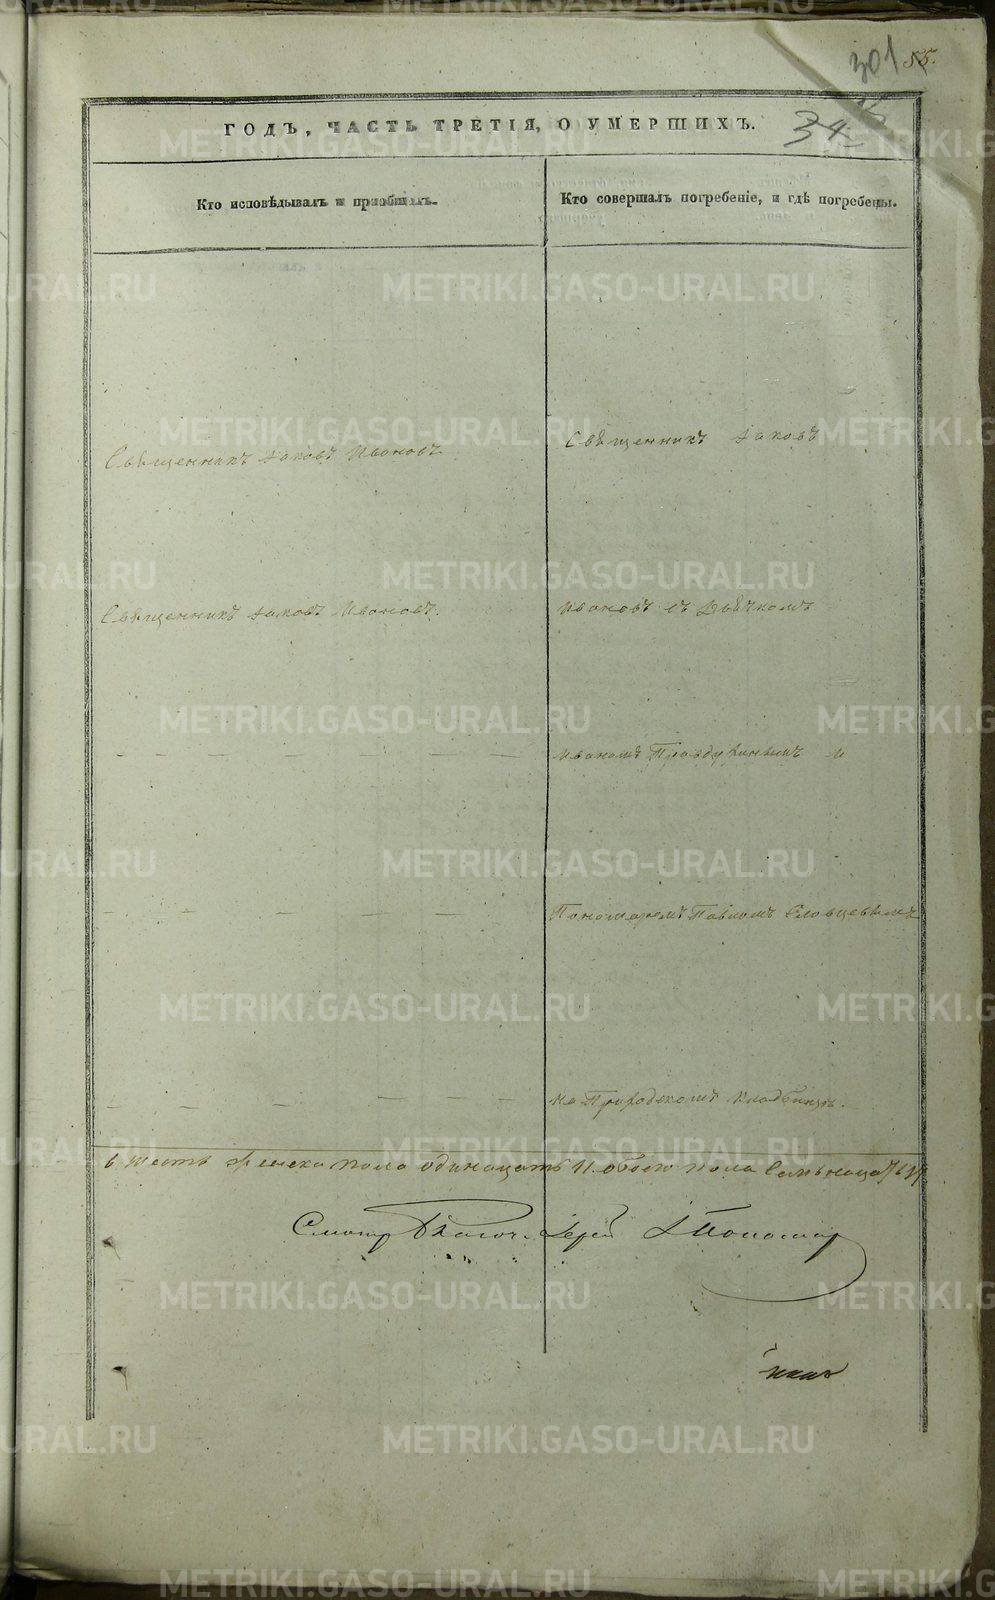 301 55.
ГОДЪ, ЧАСТЬ ТРЕТІЯ, О УМЕРШИХЪ. 34
Кто исповѣдывалъ и пріобщалъ.
Кто совершалъ погребеніе, и гдѣ погребены.
Священникъ Іаковъ Ивановъ
Священникъ Іаковъ
Священникъ Іаковъ Ивановъ.
Ивановъ съ Дьячкомъ
Иваномъ и
Пономаремъ Павломъ Словцевымъ
На Кладбищѣ.
шесть женска пола одинацать И обоего пола
Смотр Благоч. Іерей
METRIKI.GASO-URAL.RU